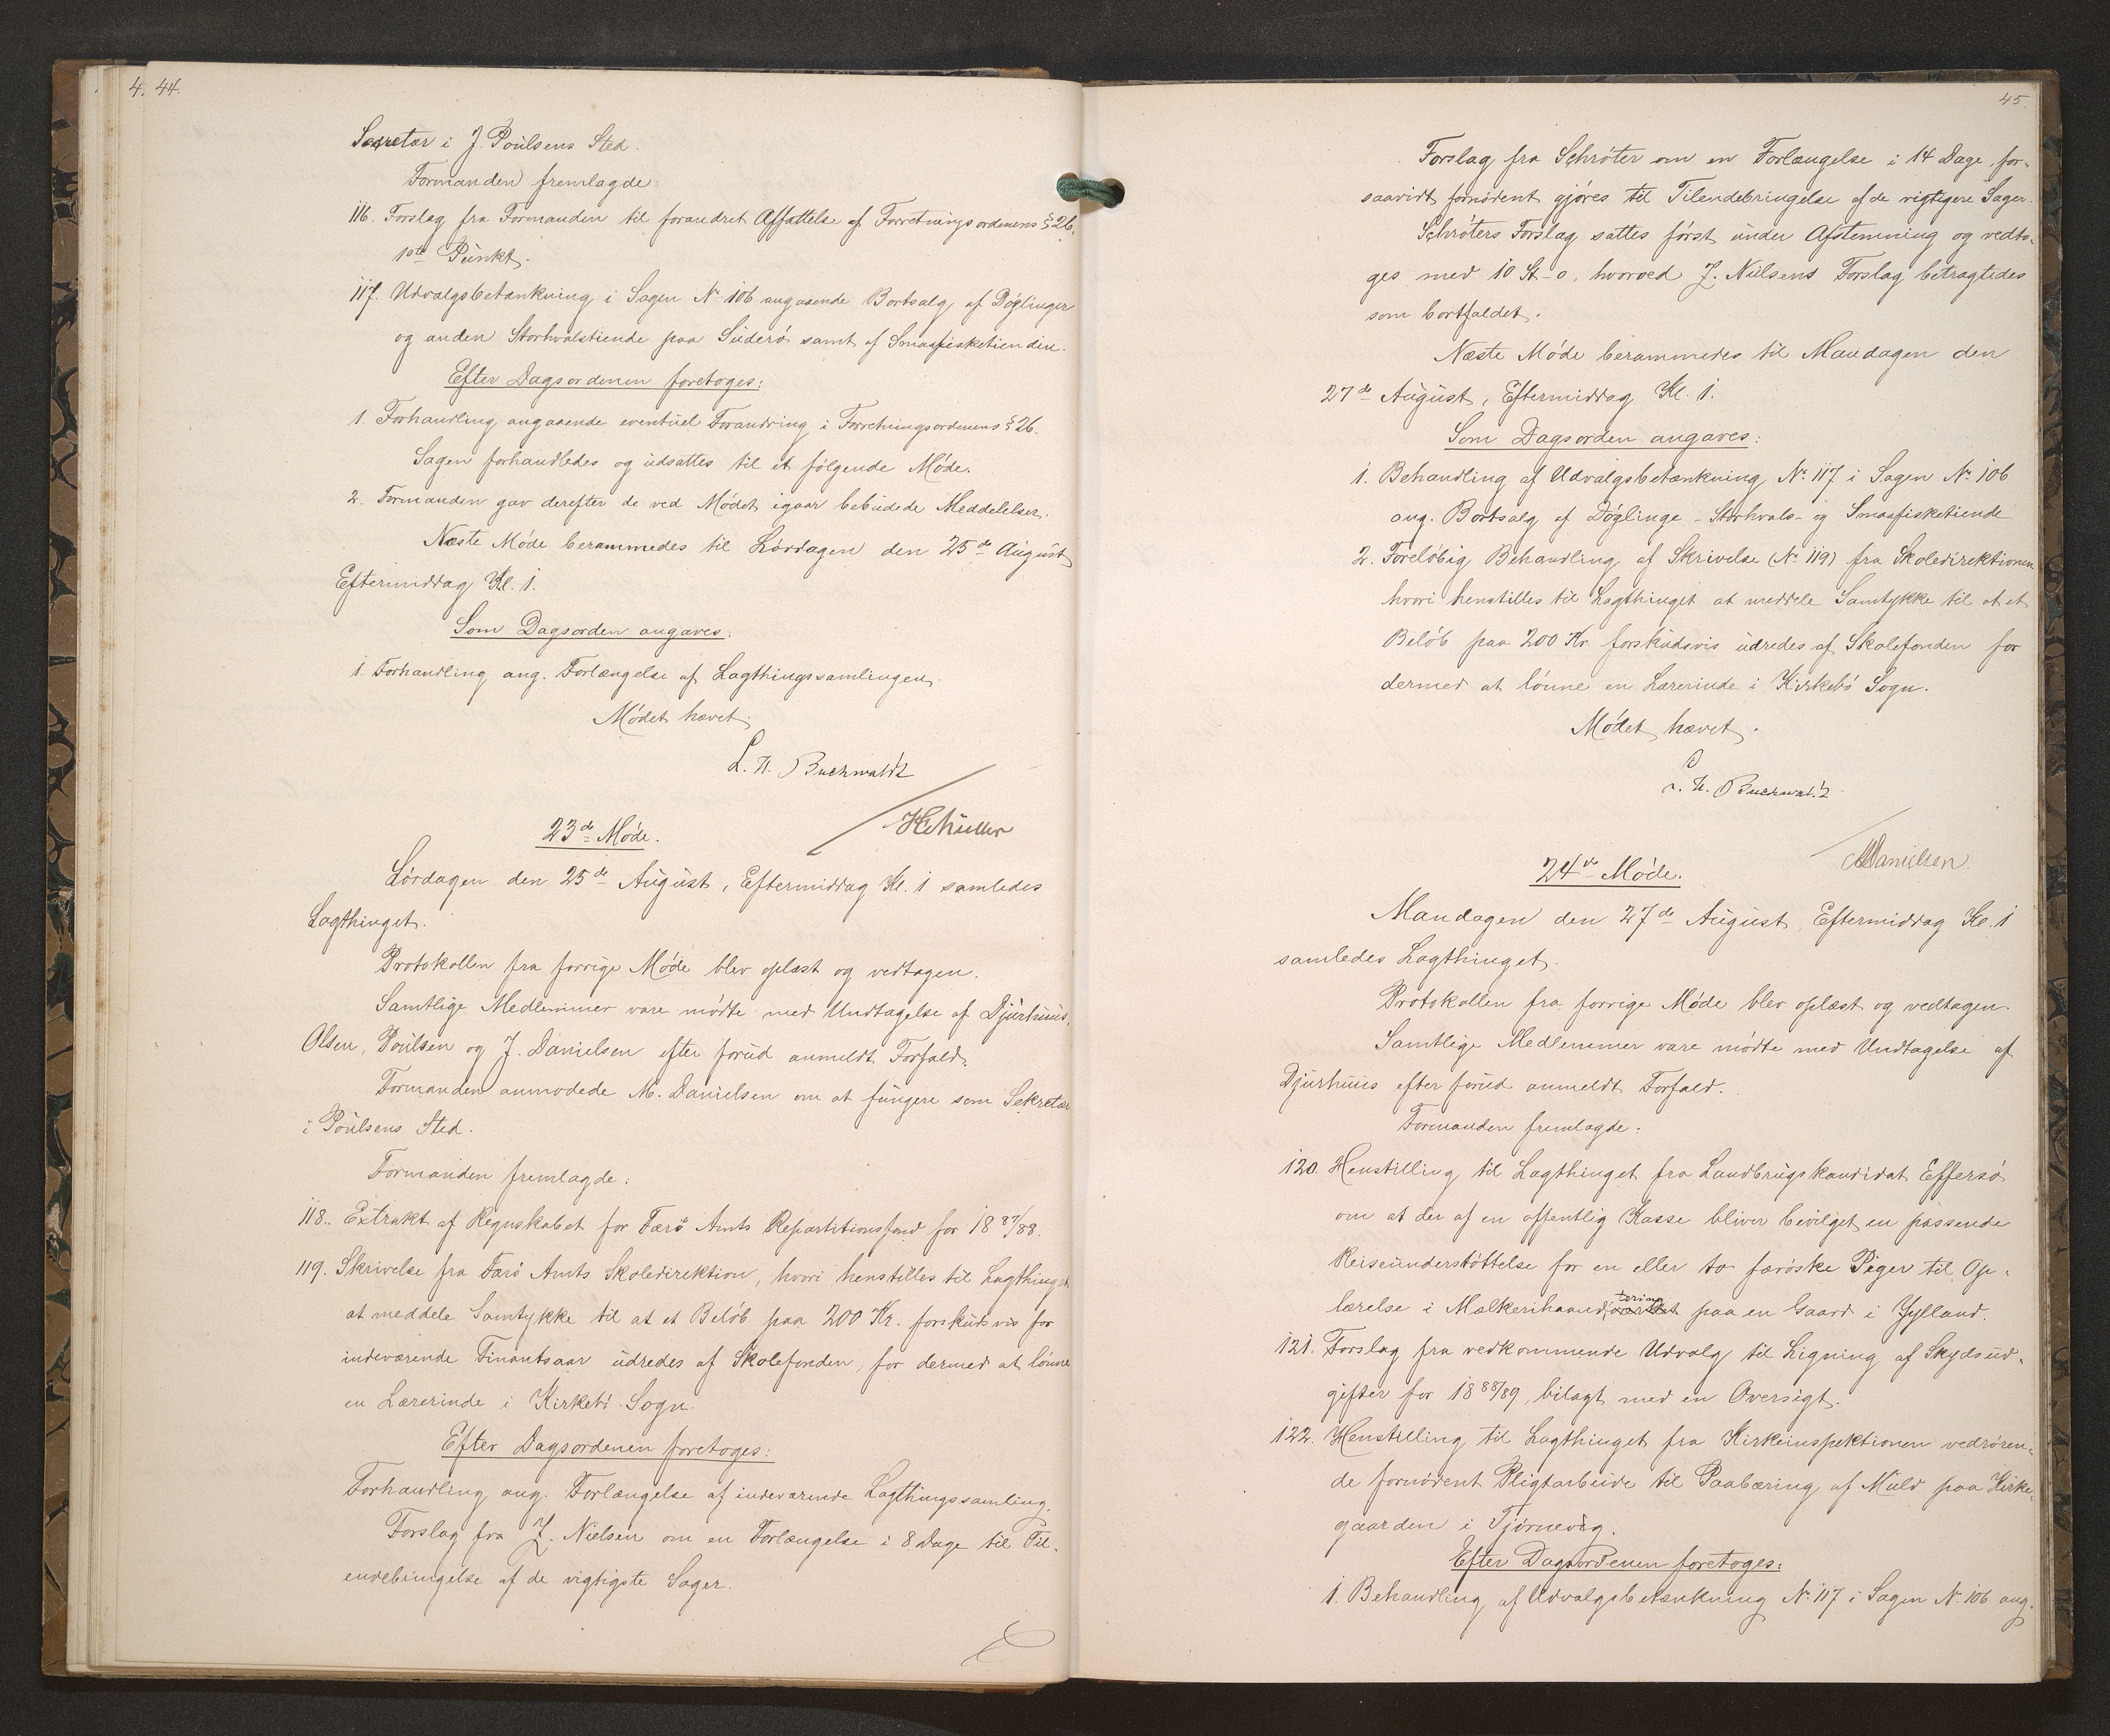 4. 44.
Secretær i J. Poulsens Sted.
Formanden fremlagde:
116. Forslag fra Formanden til forandret Affattelse af Forretningsordenens § 26,
1ste Punkt.
117. Udvalgsbetænkning i Sagen Nr 106 angaaende Bortsalg af Døglinger
og anden Storhvalstiende paa Suderø samt af Smaafisketienden.
Efter Dagsordenen foretoges:
1. Forhandling angaaende eventuel Forandring i Forretningsordenens § 26.
Sagen forhandledes og udsattes til et følgende Møde.
2. Formanden gav derefter de ved Mødet igaar bebudede Meddelelser.
Næste Møde berammedes til Lørdagen den 25de August
Eftermiddag Kl. 1.
Som Dagsorden angaves:
1. Forhandling ang. Forlængelse af Lagthingssamlingen.
Mødet hævet.
L. H. Buchwaldt
HCMüller
23de Møde.
Lørdagen den 25de August, Eftermiddag Kl. 1 samledes
Lagthinget.
Protokollen fra forrige Møde blev oplæst og vedtagen.
Samtlige Medlemmer vare mødte med Undtagelse af Djurhuus,
Olsen, Poulsen og J. Danielsen efter forud anmeldt Forfald.
Formanden anmodede M. Danielsen om at fungere som Sekretær
i Poulsens Sted.
Formanden fremlagde:
118. Extrakt af Regnskabet for Færø Amts Repartitionsfond for 18 87/88.
119. Skrivelse fra Færø Amts Skoledirektion, hvori henstilles til Lagthinget
at meddele Samtykke til at et Beløb paa 200 Kr. forskudsvis for
indeværende Finantsaar udredes af Skolefonden, for dermed at lønne
en Lærerinde i Kirkebø Sogn.
Efter Dagsordenen foretoges:
Forhandling ang. Forlængelse af indeværende Lagthingssamling.
Forslag fra J. Nielsen om en Forlængelse i 8 Dage til Til-
endebringelse af de vigtigste Sager.
45.
Forslag fra Schrøter om en Forlængelse i 14 Dage, for-
saavidt fornødent gjøres til Tilendebringelse af de vigtigere Sager.
Schrøters Forslag sattes først under Afstemning og vedto-
ges med 10 St. - 0, hvorved J. Nielsens Forslag betragtedes
som bortfaldet.
Næste Møde berammedes til Mandagen den
27de August, Eftermiddag Kl. 1.
Som Dagsorden angaves:
1. Behandling af Udvalgsbetænkning Nr 117 i Sagen Nr 106
ang. Bortsalg af Døglinge- Storhvals- og Smaafisketiende
2. Foreløbig Behandling af Skrivelse (Nr 119) fra Skoledirektionen
hvori henstilles til Lagthinget at meddele Samtykke til at et
Beløb paa 200 Kr. forskudsvis udredes af Skolefonden for
dermed at lønne en Lærerinde i Kirkebø Sogn.
Mødet hævet.
L. H. Buchwaldt
MDanielsen
24de Møde.
Mandagen den 27de August, Eftermiddag Kl. 1
samledes Lagthinget.
Protokollen fra forrige Møde blev oplæst og vedtagen.
Samtlige Medlemmer vare mødte med Undtagelse af
Djurhuus efter forud anmeldt Forfald.
Formanden fremlagde:
120. Henstilling til Lagthinget fra Landbrugskandidat Effersø
om at der af en offentlig Kasse bliver bevilget en passende
Reiseunderstøttelse for en eller to færøske Piger til Op-
lærelse i Mælkerihaandtering paa en Gaard i Jylland.
121. Forslag fra vedkommende Udvalg til Ligning af Skydsud-
gifter for 18 88/89, bilagt med en Oversigt.
122. Henstilling til Lagthinget fra Kirkeinspektionen vedrøren-
de fornødent Pligtarbeide til Paabæring af Muld paa Kirke-
gaarden i Tjørnevig.
Efter Dagsordenen foretoges:
1. Behandling af Udvalgsbetænkning Nr 117 i Sagen Nr 106 ang.